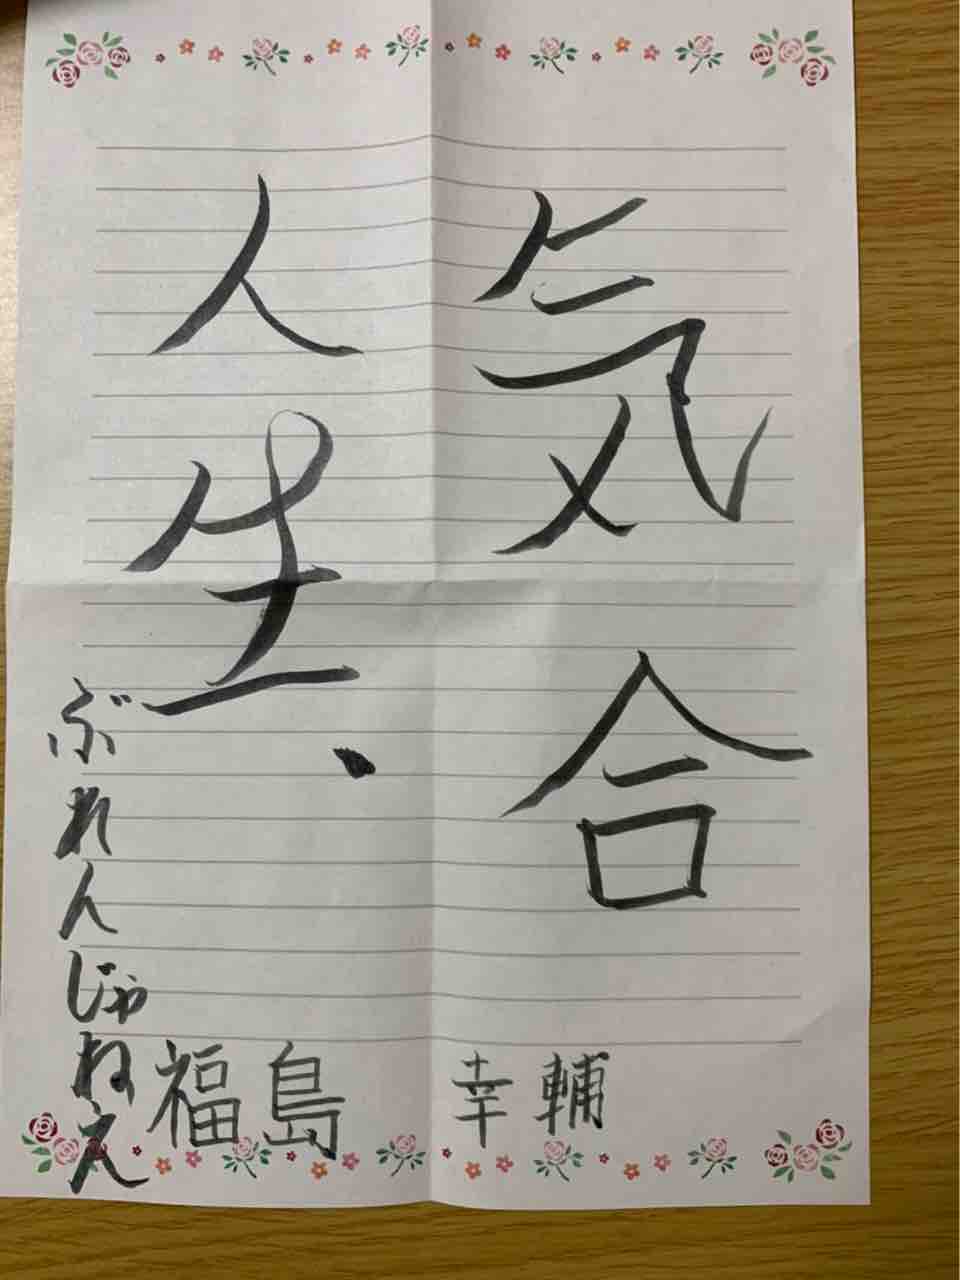 気合
人生、
ぶれんじゃねえ
福島 幸輔